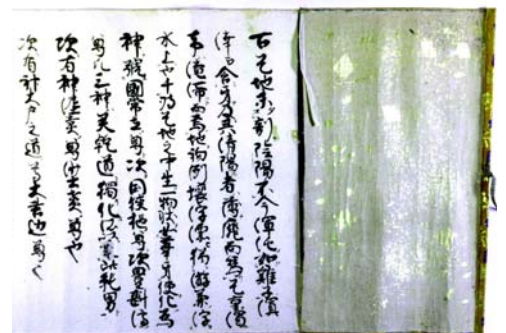 古天地未割陰陽不分渾沌如雞子溟
涬而含牙及其清陽者薄靡而為天重濁
者淹滞而為地洵例壤浮漂猶游魚浮
水上也于時天地之中生一物状如葦牙便化為
神號國常立尊次国狭槌尊次豊斟渟
尊凡三神矣乾道獨化所以成此純男
次有神埿土煑尊沙土煑尊也
次有神大戸之道尊大苫边尊